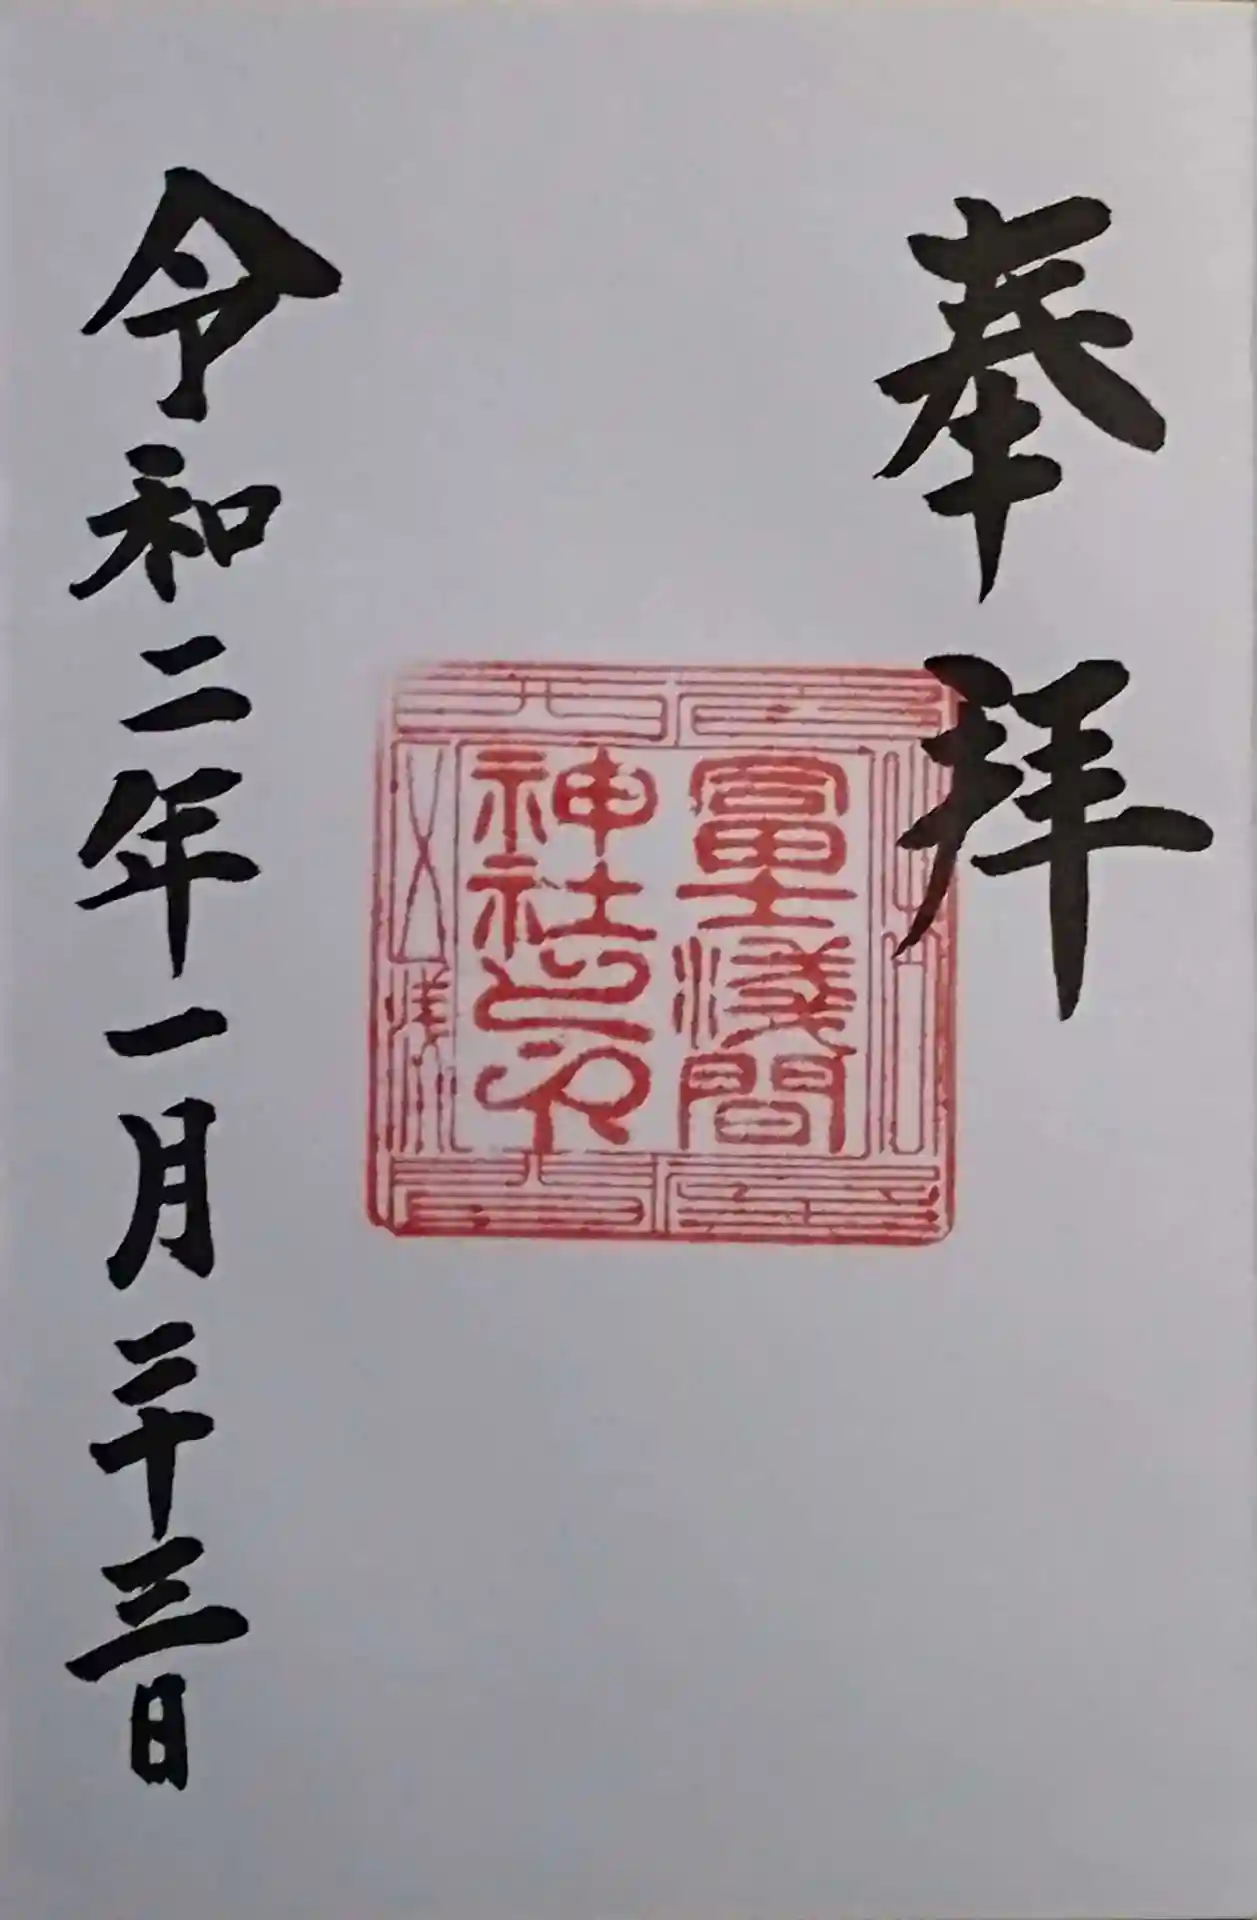 奉拝
冨士浅間
神社之印
令和二年一月二十三日